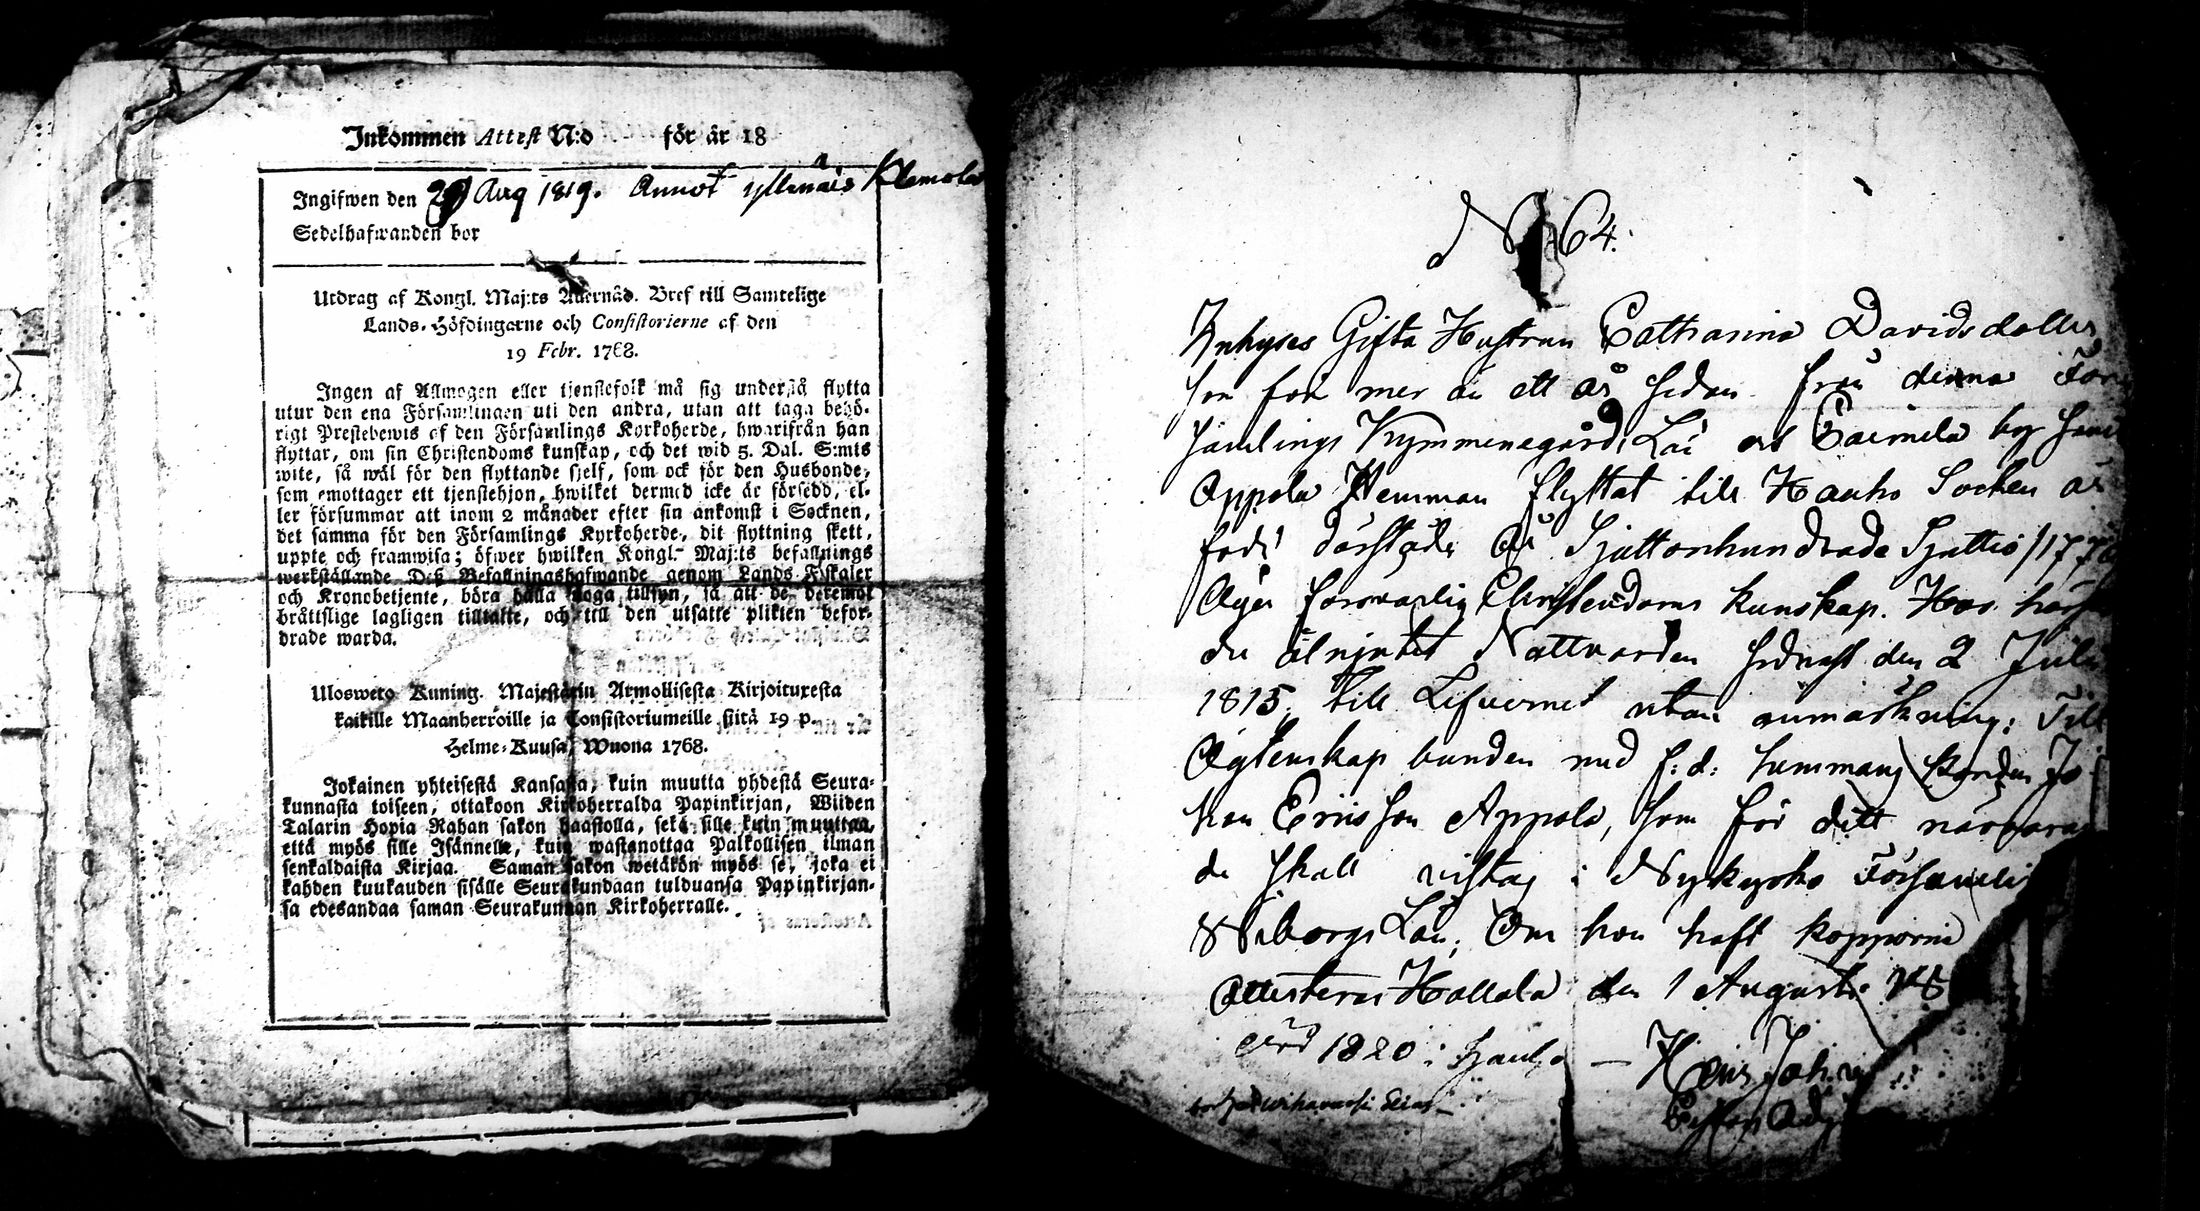 Inkommen Attest N:o för år 18
Ingifwen den 29 Aug 1819. Annot Yllenäis Klemola
Sedelhafwanden bor
Utdrag af Kongl. Maj:ts Allernåd. Bref till Samtelige
Lands-Höfdingarne och Consistorierne af den
19 Febr. 1768.
Ingen af Allmogen eller tjenstefolk må sig understå flytta
utur den ena Församlingen uti den andra, utan att taga behö-
rigt Prestebewis af den Församlings Kyrkoherde, hwarifrån han
flyttar, om sin Christendoms kunskap, och det wid 5. Dal. S:mts
wite, så wäl för den flyttande sjelf, som ock för den Husbonde,
som emottager ett tjenstehjon, hwilket dermed icke är försedd, el-
ler försummar att inom 2 månader efter sin ankomst i Socknen,
det samma för den Församlings Kyrkoherde, dit flyttning skett,
uppte och framwisa; öfwer hwilken Kongl. Maj:ts befallnings
werkställande Deß Befallningshafwande genom Lands Fiskaler
och Kronobetjente, böra hålla noga tillsyn, så att de deremot
bråttslige lagligen tilltalte, och till den utsatte plikten befor-
drade warda.
Ulosweto Kuning. Majestätin Armollisesta Kirjoituxesta
kaikille Maanherroille ja Consistoriumeille siitä 19 p.
Helme-Kuusa, Wuona 1768.
Jokainen yhteisestä Kansasta, kuin muutta yhdestä Seura-
kunnasta toiseen, ottakoon Kirkoherralda Papinkirjan, Wiiden
Talarin Hopia Rahan sakon haastolla, sekä sille kuin muuttaa,
että myös sille Isännelle, kuin wastanottaa Palkollisen ilman
senkaldaista Kirjaa. Saman sakon wetäkön myös se, joka ei
kahden kuukauden sisälle Seurakundaan tulduansa Papinkirjan-
sa edesandaa saman Seurakunnan Kirkoherralle.
N 64.
Inhyses Gifta Hustrun Catharina Davidsdotter
som för mer än ett år sedan från denna För
samlings Kymmenegårds Län och by
Appola Hemman flyttat till Hauho Socken är
född därstädes År Sjuttonhundrade Sjuttio /177
Äger försvarlig Christendoms kunskap. Har
de åtnjutit Nattvarden sednast den 2 Juli
1815, till Lefvernet utan anmärkning: Till
Ägtenskap bunden med f:d: Jo
han Ericsson Appola, som för ditt närvaran
de skall vistas i Nykyrko Församling
Wiborgs Län. Om hon haft kopporne
Attesteras Hollola den 1 Augusti 18
1820 i Hauho — Henr Joh
Adj